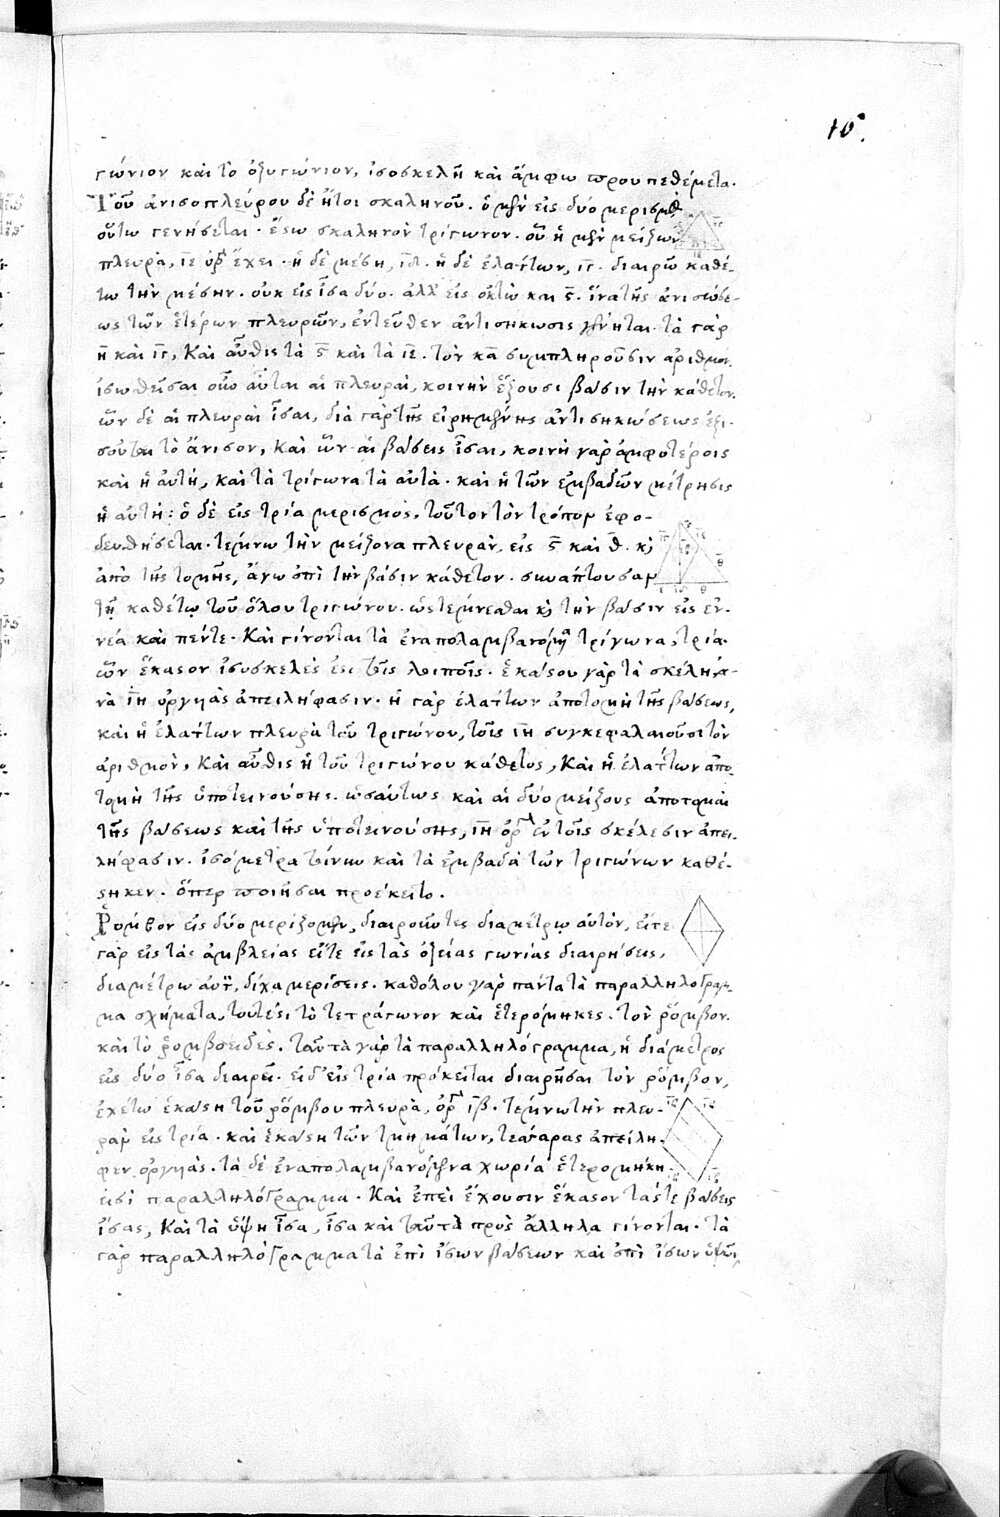 16.
γώνιον καὶ τὸ ὀξυγώνιον, ἰσοσκελῆ καὶ ἄμφω προυπεθέμεθα.
Τοῦ ἀνισοπλεύρου δὲ ἤτοι σκαληνοῦ. ὁ μὲν εἰς δύο μερισμὸς
οὕτω γενήσεται. ἔστω σκαληνὸν τρίγωνον. οὗ ἡ μὲν μείζων
πλευρὰ, ιε ὀργ ἔχει. ἡ δὲ μέση, ιδ. ἡ δὲ ἐλάττων, ιγ. διαιρῶ καθέ-
τω τὴν μέσην. οὐκ εἰς ἶσα δύο. ἀλλ' εἰς ὀκτὼ και ϛ. ἵνα τῆς ἀνισώσε-
ως τῶν ἑτέρων πλευρῶν, ἐντεῦθεν ἀντισήκωσις γένηται. τὰ γὰρ
η καὶ ιγ, καὶ αὖθις τὰ ϛ καὶ τὰ ιε. τὸν κα συμπληροῦσιν ἀριθμόν.
ἰσωθεῖσαι οὖν αὗται αἱ πλευραὶ, κοινὴν ἕξουσι βάσιν τὴν κάθετον.
ὧν δὲ αἱ πλευραὶ ἶσαι, διὰ γὰρ τῆς εἰρημένης ἀντισηκώσεως ἐξι-
σοῦται τὸ ἄνισον, καὶ ὧν αἱ βάσεις ἶσαι, κοινὴ γὰρ ἀμφοτέροις
καὶ ἡ αὐτή, καὶ τὰ τρίγωνα τὰ αὐτὰ. καὶ ἡ τῶν ἐμβαδῶν μέτρησις
ἡ αὐτή: ὁ δὲ εἰς τρία μερισμὸς, τοῦτον τὸν τρόπον ἐφο-
δευθήσεται. τέμνω τὴν μείζονα πλευρὰν, εἰς ϛ καὶ θ. κ
ἀπὸ τῆς τομῆς, ἄγω ἐπὶ τὴν βάσιν κάθετον. συνάπτουσαν
τῇ καθέτῳ τοῦ ὅλου τριγώνου. ὡς τέμνεσθαι κ τὴν βάσιν εἰς ἐν-
νέα καὶ πέντε. Καὶ γίνονται τὰ ἐναπολαμβανόμενα τρίγωνα, τρία.
ὧν ἕκαστον ἰσοσκελές ἐστι τοῖς λοιποῖς. ἑκάστου γὰρ τὰ σκέλη ἀ-
νὰ ιη ὀργυιὰς ἀπειλήφασιν. ἡ γὰρ ἐλάττων ἀποτομὴ τῆς βάσεως,
καὶ ἡ ἐλάττων πλευρὰ τοῦ τριγώνου, τοῖς ιη συγκεφαλαιοῦσι τὸν
ἀριθμὸν, καὶ αὖθις ἡ τοῦ τριγώνου κάθετος, καὶ ἡ ἐλάττων ἀπο-
τομὴ τῆς ὑποτεινούσης. ὡσαύτως καὶ αἱ δύο μείζους ἀποτομαὶ
τῆς βάσεως καὶ τῆς ὑποτεινούσης, ιη ὀργ ἐν τοῖς σκέλεσιν ἀπει-
λήφασιν. ἰσόμετρα τοίνυν καὶ τὰ ἐμβαδὰ τῶν τριγώνων καθέ-
στηκεν. ὅπερ ποιῆσαι προέκειτο.
Ῥόμβον εἰς δύο μερίζομεν, διαιροῦντες διαμέτρῳ αὐτὸν, εἴτε
γὰρ εἰς τὰς ἀμβλείας εἴτε εἰς τὰς ὀξείας γωνίας διαιρήσεις,
διαμέτρω αὐτ, δίχα μερίσεις. καθόλου γὰρ πάντα τὰ παραλληλόγραμ-
μα σχήματα, τουτέστι τὸ τετράγωνον καὶ ἑτερόμηκες. τὸν ῥόμβον.
καὶ τὸ ῥομβοειδὲς. ταῦτα γὰρ τὰ παραλληλόγραμμα, ἡ διάμετρος
εἰς δύο ἶσα διαιρεῖ. εἰ δ' εἰς τρία πρόκειται διαιρῆσαι τὸν ῥόμβον,
ἐχέτω ἑκάστη τοῦ ῥόμβου πλευρὰ, ὀργ ιβ. τέμνω τὴν πλευ-
ρὰν εἰς τρία. καὶ ἑκάστη τῶν τμημάτων, τέσσαρας ἀπείλη-
φεν ὀργυιὰς. τὰ δὲ ἐναπολαμβανόμενα χωρία ἑτερομήκη
εἰσὶ παραλληλόγραμμα. Καὶ ἐπεὶ ἔχουσιν ἕκαστον τάς τε βάσεις
ἴσας, καὶ τὰ ὕψη ἶσα, ἶσα καὶ ταῦτα πρὸς ἄλληλα γίνονται. τὰ
γὰρ παραλληλόγραμμα τὰ ἐπὶ ἴσων βάσεων καὶ ὑπὸ ἴσων ὑψῶν,